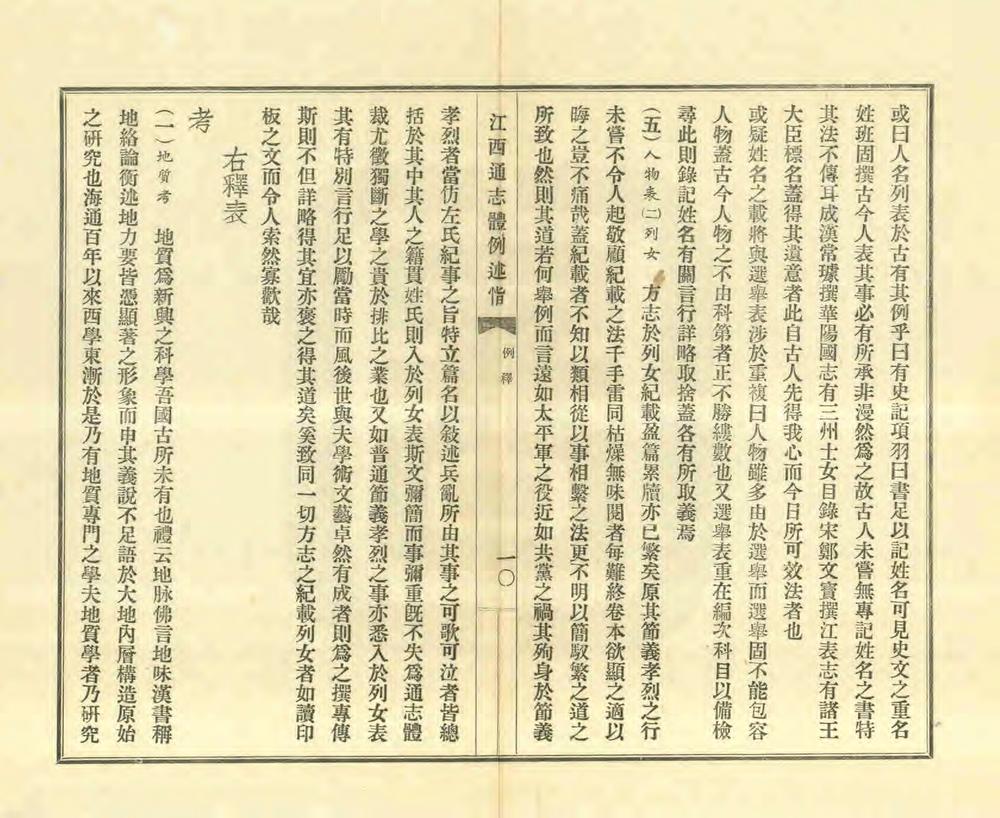 或曰人名列表於古有其例乎曰有史記項羽曰書足以記姓名可見史文之重名
姓班固撰古今人表其事必有所承非漫然爲之故古人未嘗無專記姓名之書特
其法不傳耳成漢常璩撰華陽國志有三州士女目錄宋鄭文寶撰江表志有諸王
大臣標名蓋得其遺意者此自古人先得我心而今日所可效法者也
或疑姓名之載將與選舉表涉於重複曰人物雖多由於選舉而選舉固不能包容
人物蓋古今人物之不由科第者正不勝縷數也又選舉表重在編次科目以備檢
尋此則錄記姓名有關言行詳略取捨蓋各有所取義焉
(五)人物表(二)列女 方志於列女紀載盈篇累牘亦已繁矣原其節義孝烈之行
未嘗不令人起敬顧紀載之法千手雷同枯燥無味閱者每難終卷本欲顯之適以
晦之豈不痛哉蓋紀載者不知以類相從以事相繫之法更不明以簡馭繁之道之
所致也然則其道若何舉例而言遠如太平軍之役近如共黨之禍其殉身於節義
江西通志體例述恉 例釋 一〇
孝烈者當仿左氏紀事之旨特立篇名以敍述兵亂所由其事之可歌可泣者皆總
括於其中其人之籍貫姓氏則入於列女表斯文彌簡而事彌重旣不失爲通志體
裁尤徵獨斷之學之貴於排比之業也又如普通節義孝烈之事亦悉入於列女表
其有特別言行足以勵當時而風後世與夫學術文藝卓然有成者則爲之撰專傳
斯則不但詳略得其宜亦褒之得其道矣奚致同一切方志之紀載列女者如讀印
板之文而令人索然寡歡哉
右釋表
考
(一)地質考 地質爲新興之科學吾國古所未有也禮云地脉佛言地味漢書稱
地絡論衡述地力要皆憑顯著之形象而申其義說不足語於大地內層構造原始
之硏究也海通百年以來西學東漸於是乃有地質專門之學夫地質學者乃硏究